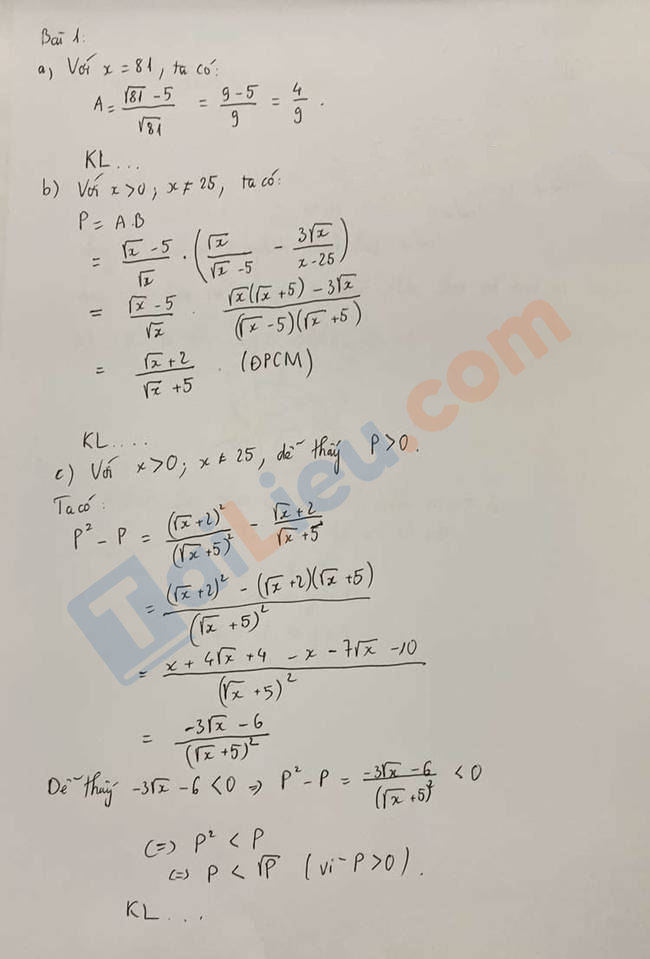 Bài 1:
a) Với x = 81, ta có:
A = (√81 - 5)/√81 = (9 - 5)/9 = 4/9.
KL...
b) Với x > 0; x ≠ 25, ta có:
P = A.B
= (√x - 5)/√x · (√x/(√x - 5) - 3√x/(x - 25))
= (√x - 5)/√x · (√x(√x + 5) - 3√x)/((√x - 5)(√x + 5))
= (√x + 2)/(√x + 5). (ĐPCM)
KL....
c) Với x > 0; x ≠ 25, dễ thấy P > 0.
Ta có:
P² - P = (√x + 2)²/(√x + 5)² - (√x + 2)/(√x + 5)
= ((√x + 2)² - (√x + 2)(√x + 5))/(√x + 5)²
= (x + 4√x + 4 - x - 7√x - 10)/(√x + 5)²
= (-3√x - 6)/(√x + 5)²
Dễ thấy -3√x - 6 < 0 => P² - P = (-3√x - 6)/(√x + 5)² < 0
<=> P² < P
<=> P < √P (vì P > 0).
KL...
TaiLieu.com